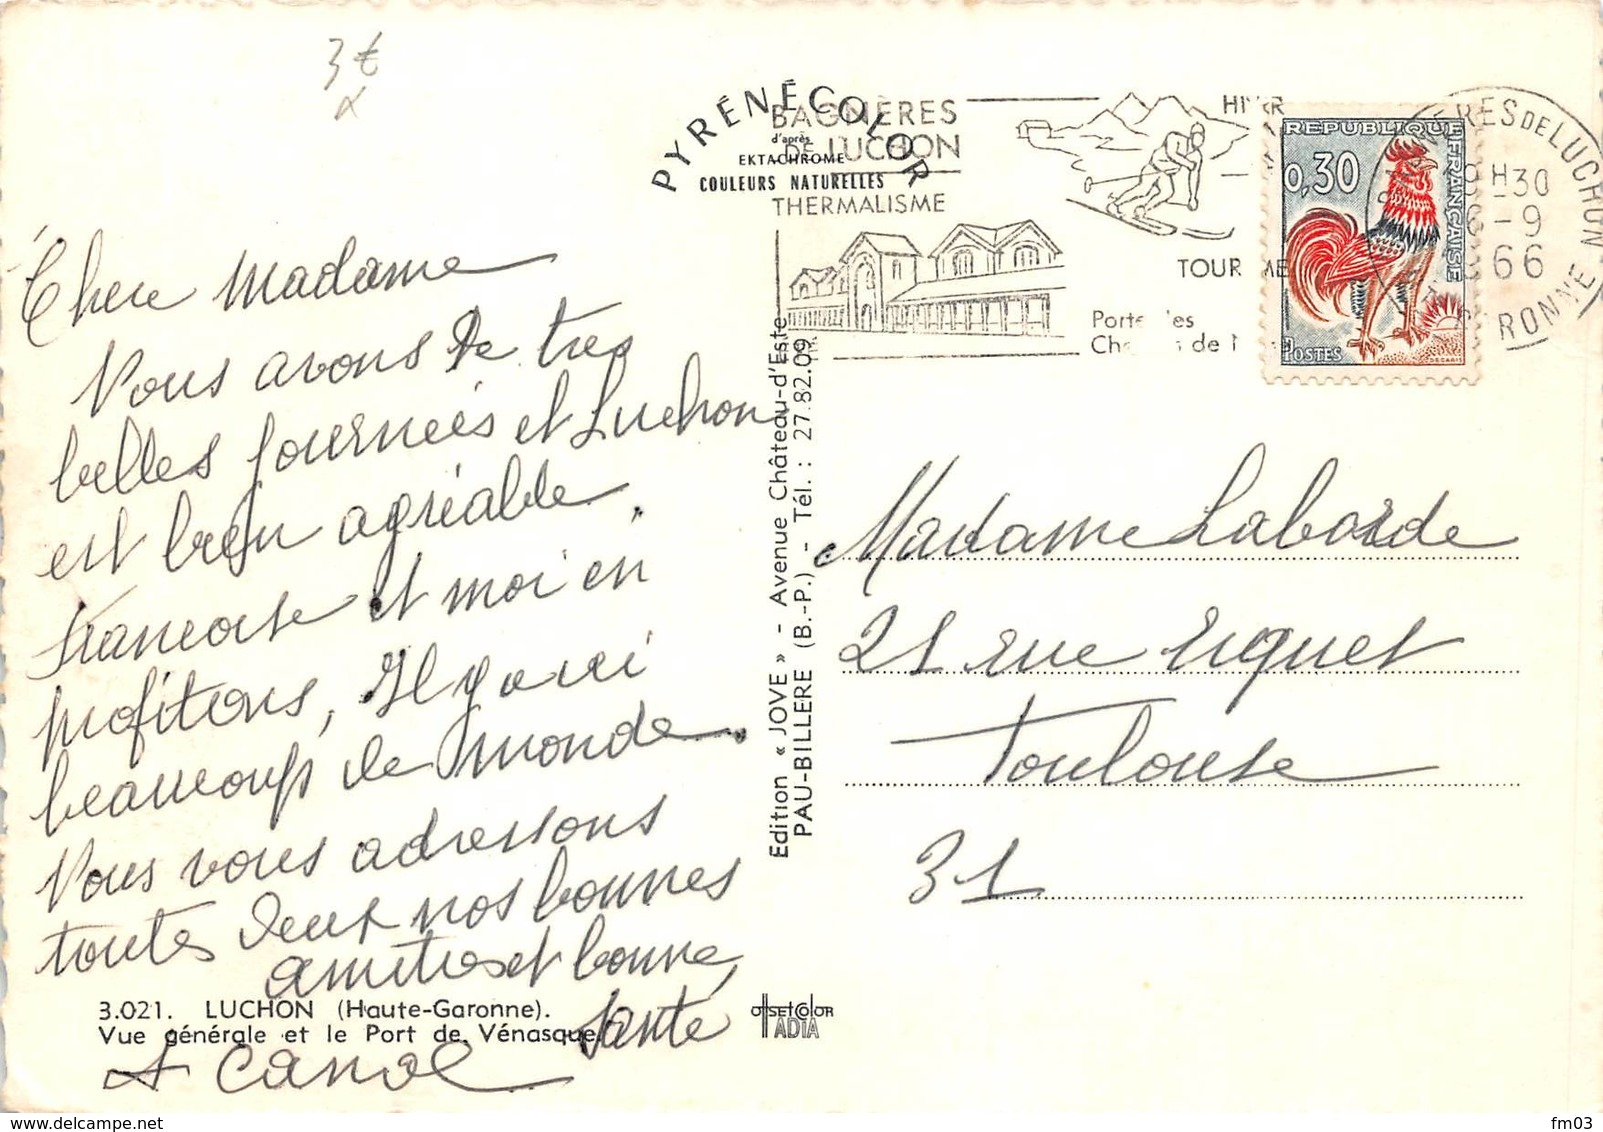 3€
PYRÉNÉCOLOR
d'après
EKTACHROME
COULEURS NATURELLES
BAGNÈRES
DE LUCHON
THERMALISME
HIVER
TOURISME
Porte des
de
BAGNÈRES DE LUCHON
H30
6-9
66
GARONNE
REPUBLIQUE FRANCAISE
0,30
POSTES
DECARIS
Chere Madame
Nous avons de tres
belles journées et Luchon
est bien agréable.
Francoise et moi en
profitons, Il y a ici
beaucoup de monde.
Nous vous adressons
toutes deux nos bonnes
amities et bonne
santé
A Canal
Edition « JOVE » - Avenue Château-d'Este
PAU-BILLÈRE (B.-P.) - Tél. : 27.82.09
Madame Laborde
21 rue riquet
Toulouse
31
3.021. LUCHON (Haute-Garonne).
Vue générale et le Port de Vénasque.
OFFSETCOLOR
IADIA
fm03